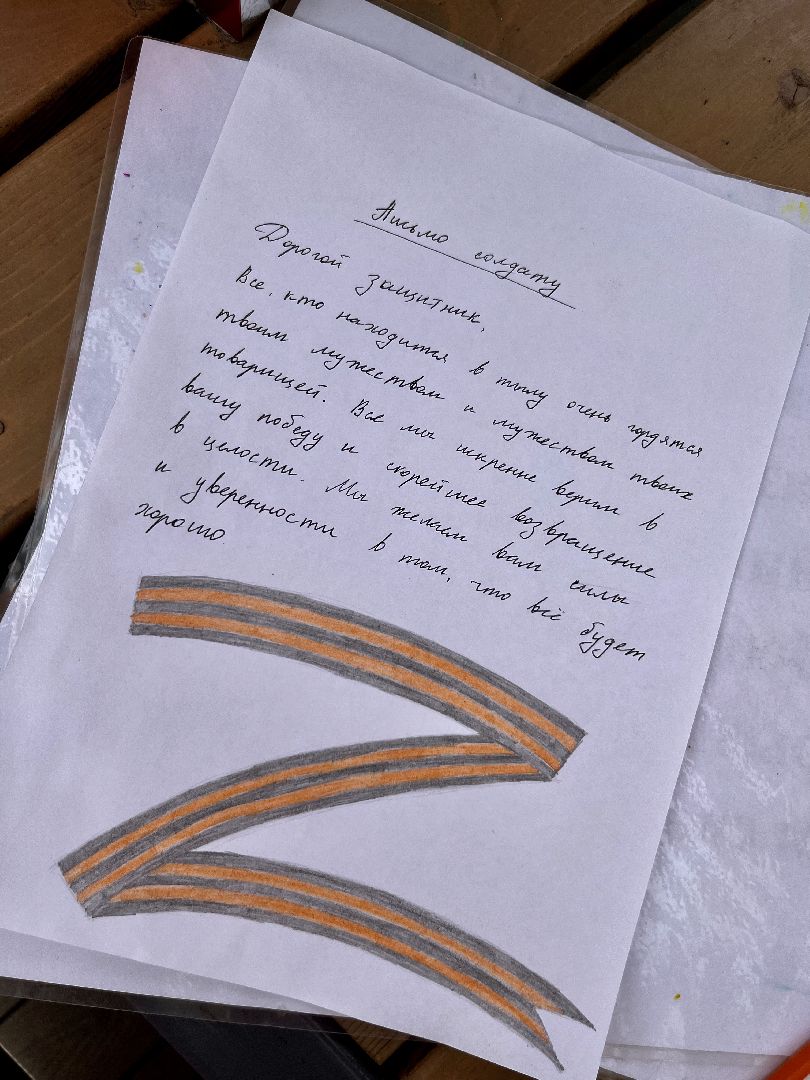 Письмо солдату
Дорогой защитник,
Все, кто находится в тылу очень гордятся
твоим мужеством и мужеством твоих
товарищей. Все мы искренне верим в
вашу победу и скорейшее возвращение
в целости. Мы желаем вам силы
и уверенности в том, что всё будет
хорошо.